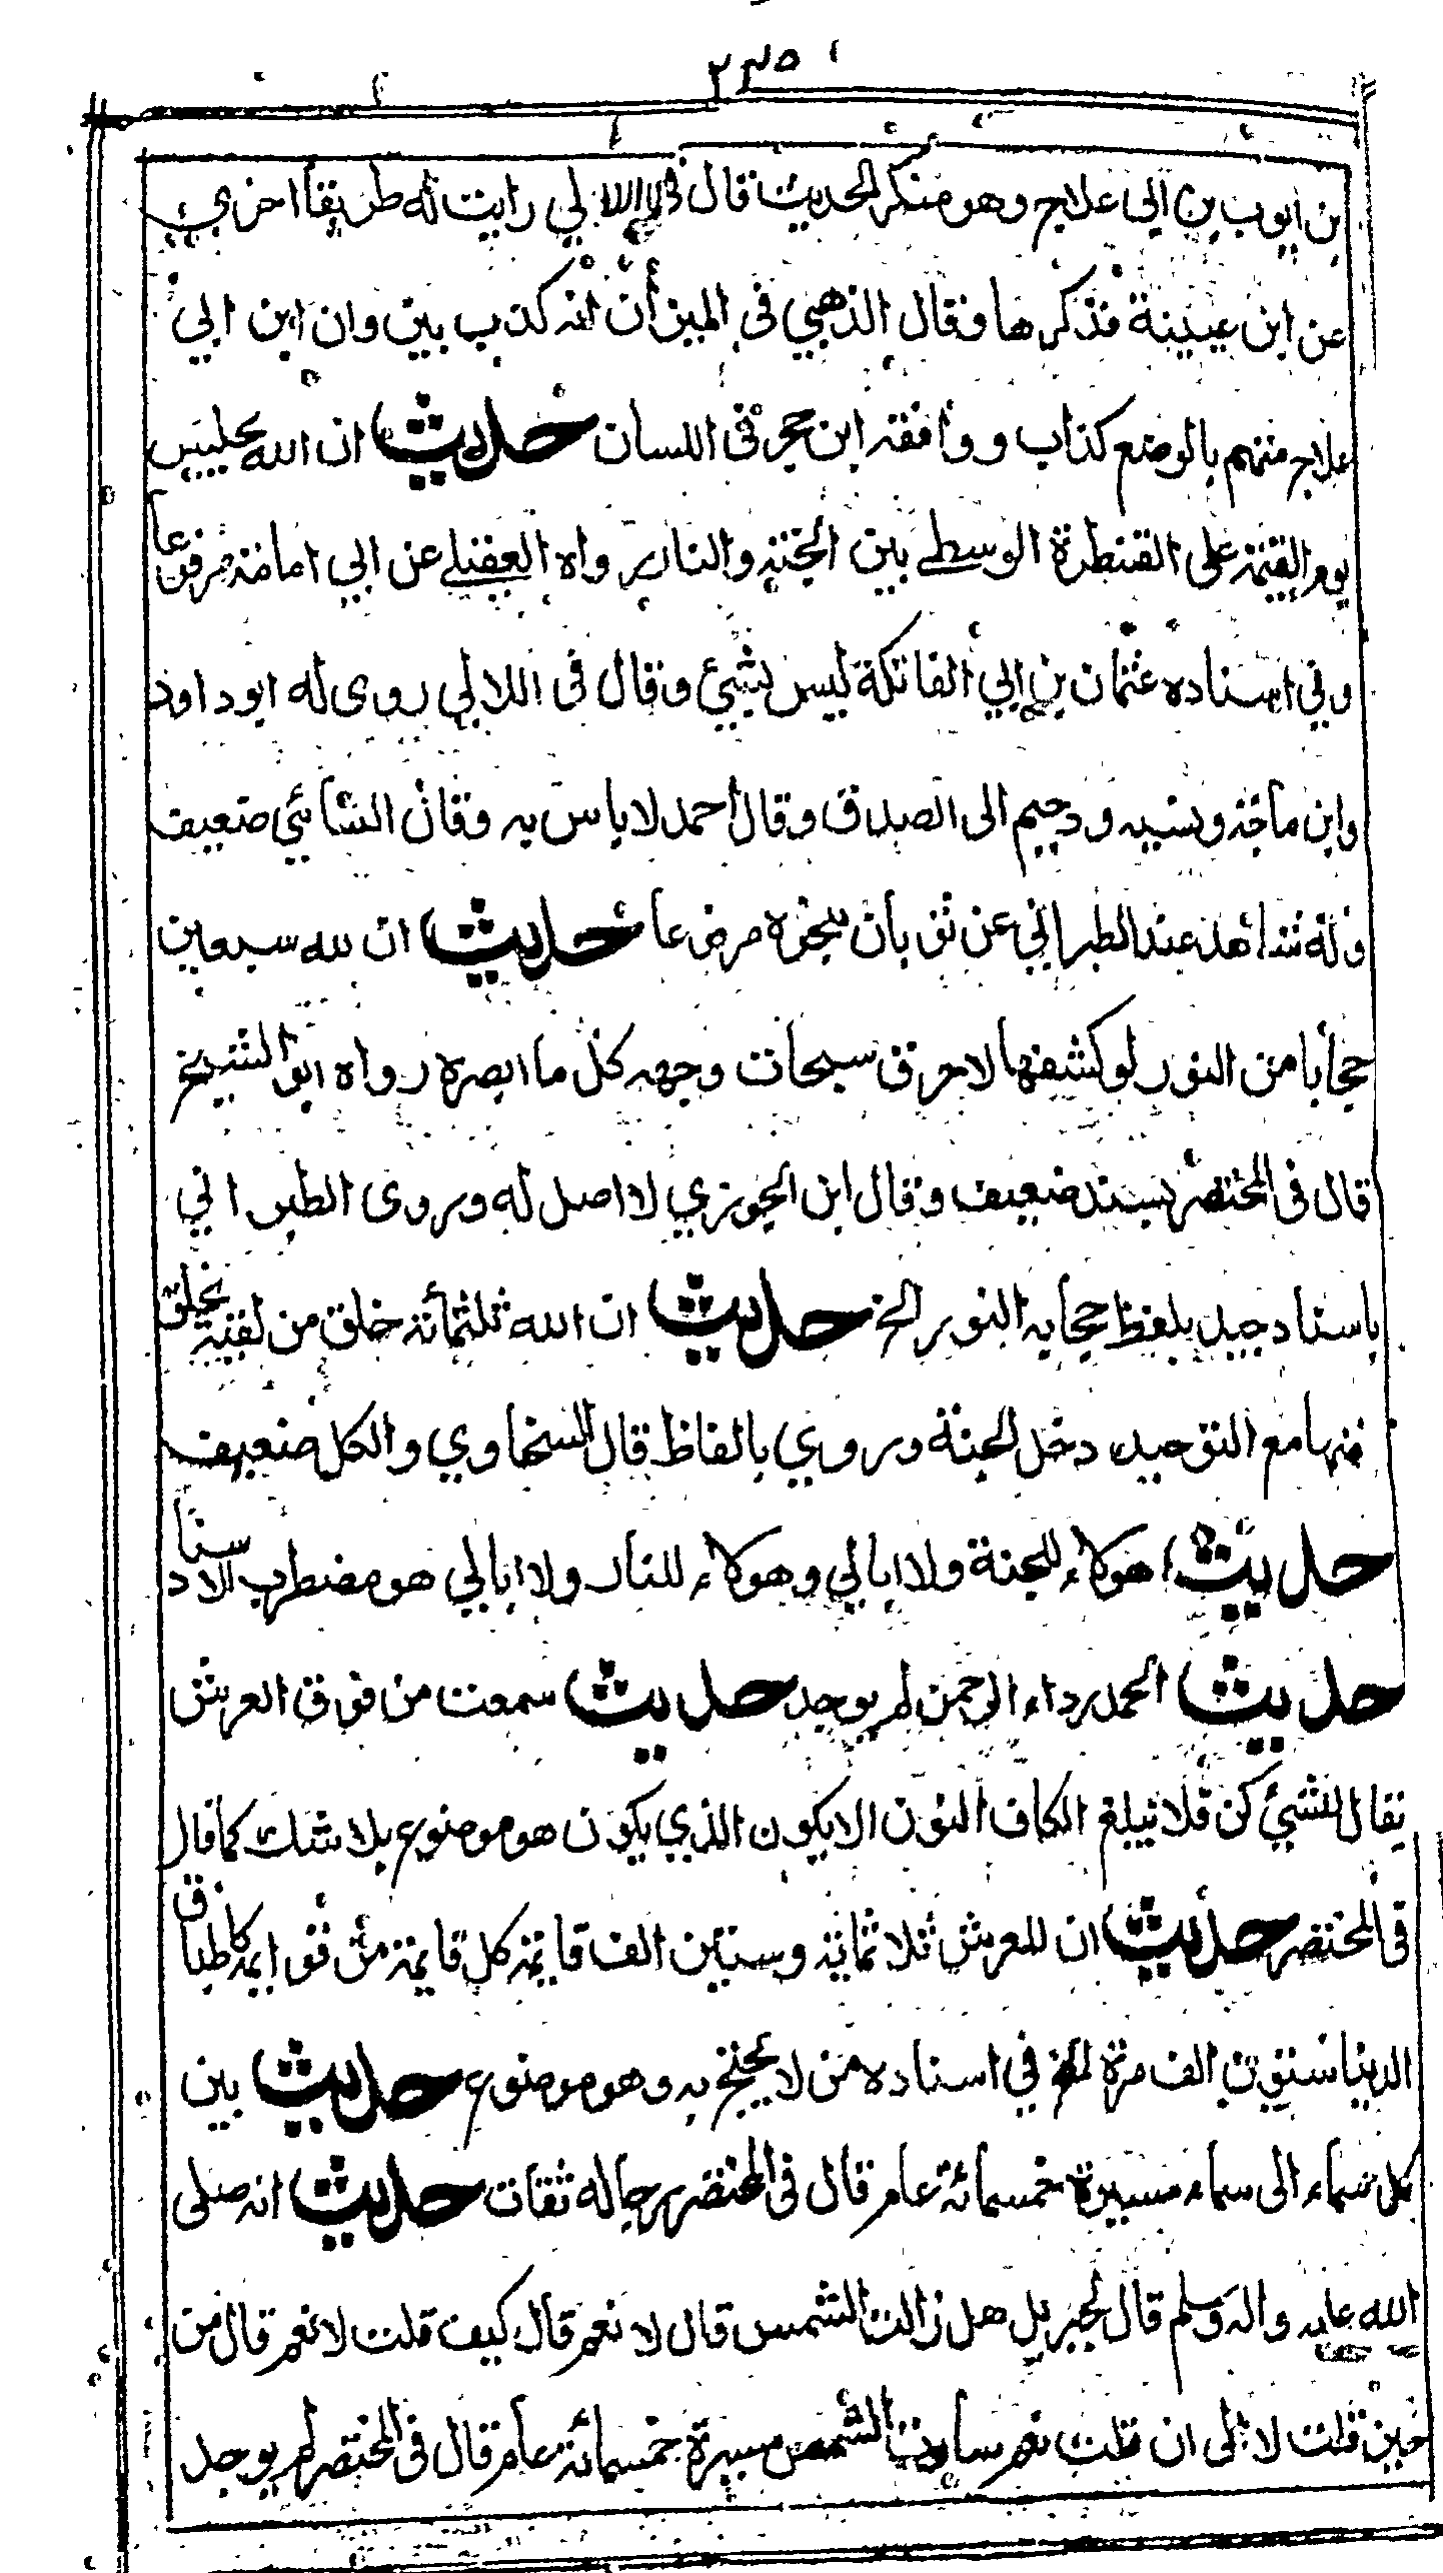 ٢٣٥
بن ايوب بن ابي علاج وهو منكر الحديث قال في اللالي رايت له طريقا اخري
عن ابن عيينة فذكرها وقال الذهبي في الميزان انه كذب بين وان ابن ابي
علاج متهم بالوضع كذاب و وافقه ابن حجر في اللسان حديث ان الله يجلس
يوم القيمة على القنطرة الوسطى بين الجنة والنار رواه العقيلي عن ابي امامة مرفوعا
وفي اسناده عثمان بن ابي الفاتكة ليس بشيئ وقال في اللالي روى له ابو داود
وابن ماجة ونسبه دحيم الى الصدق وقال احمد لا باس به وقال النسائي ضعيف
وله شاهد عند الطبراني عن ثوبان بنحوه مرفوعا حديث ان لله سبعين
حجابا من النور لو كشفها لاحرق سبحات وجهه كل ما ابصره رواه ابو الشيخ
قال في المختصر بسند ضعيف وقال ابن الجوزي لا اصل له وروى الطبراني
باسناد جيد بلفظ حجابه النور الخ حديث ان الله ثلثمائة خلق من لقيه بخلق
منها مع التوحيد دخل الجنة وروي بالفاظ قال السخاوي والكل ضعيف
حديث هوكاء للجنة ولا ابالي وهوكاء للنار ولا ابالي هو مضطرب الاسناد
حديث الحمد رداء الرحمن لم يوجد حديث سمعت من فوق العرش
يقال للشيئ كن فلا تبلغ الكاف النون الا يكون الذي يكون هو موضوع بلا شك كما قال
في المختصر حديث ان للعرش ثلاثمائة وستين الف قايمة كل قايمة من قوايمه كاطباق
الدنيا ستين الف مرة الخ في اسناده من لا يحتج به وهو موضوع حديث بين
كل سماء الى سماء مسيرة خمسمائة عام قال في المختصر رجاله ثقات حديث انه صلى
الله عليه واله وسلم قال لجبريل هل زالت الشمس قال لا نعم قال كيف قلت لا نعم قال من
حين قلت لا الى ان قلت نعم سارت الشمس مسيرة خمسمائة عام قال في المختصر لم يوجد